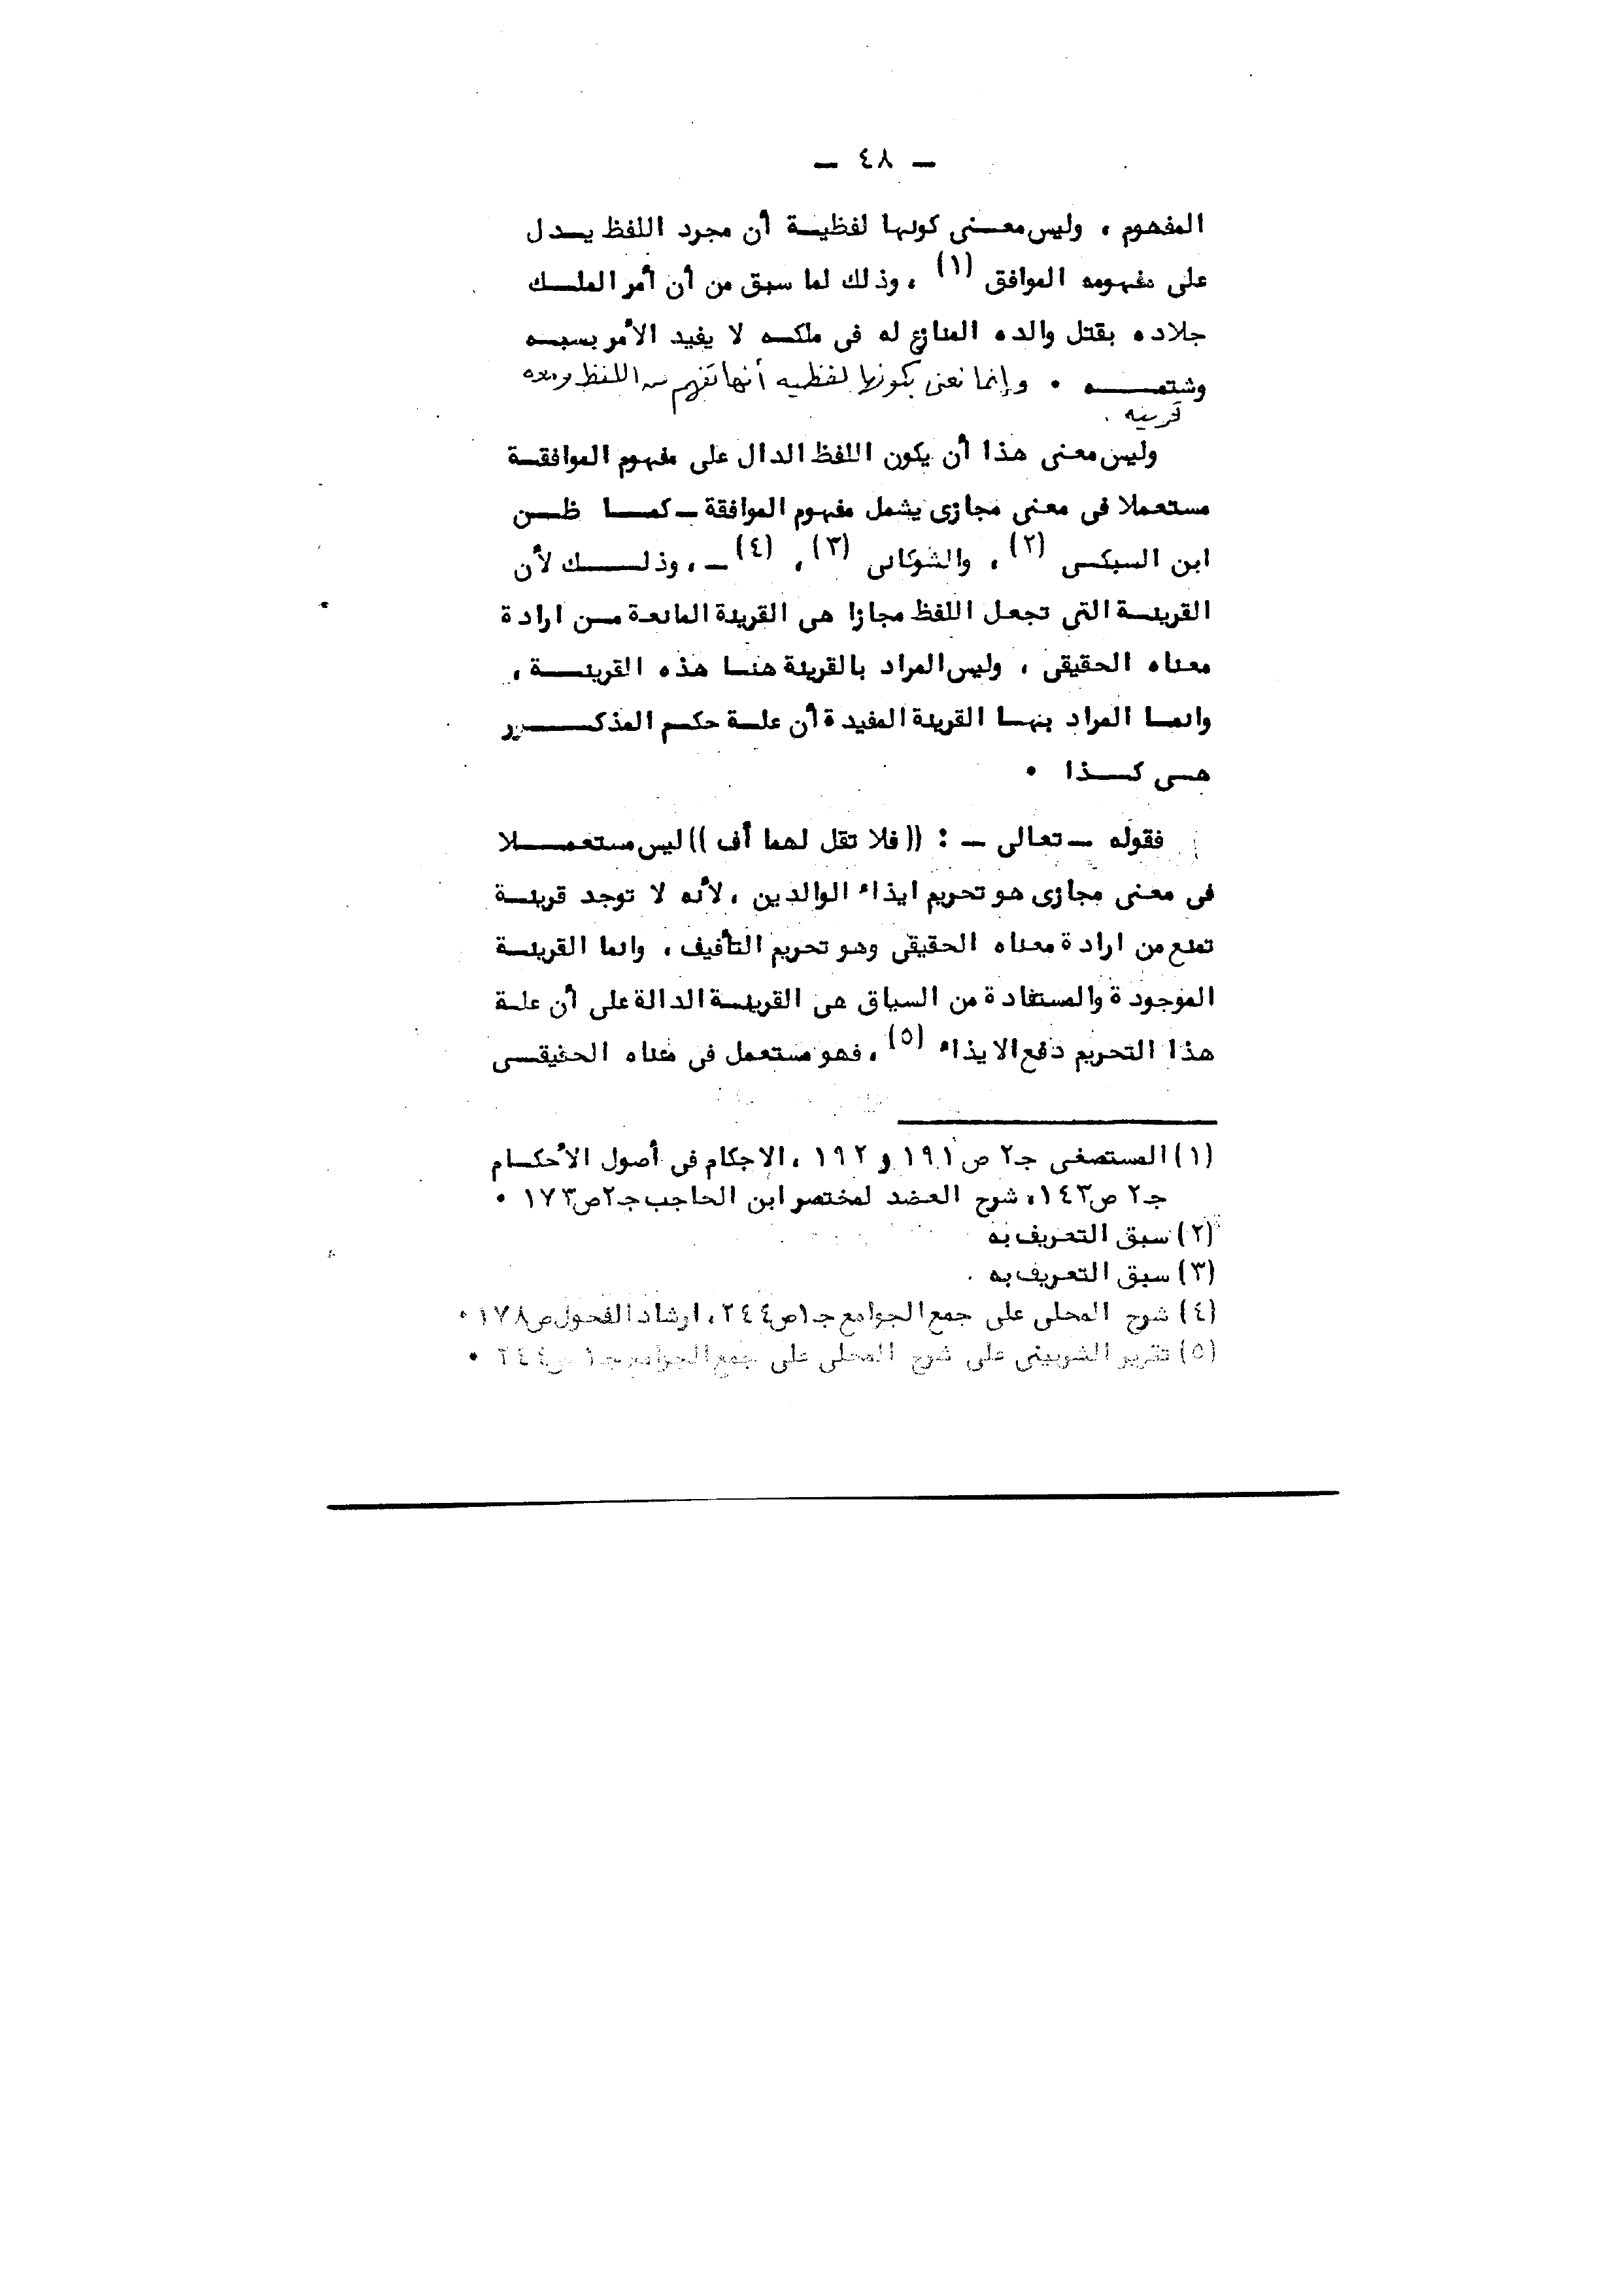 — ٤٨ —
المفهوم ، وليس معنى كونها لفظية أن مجرد اللفظ يدل
على مفهومه الموافق (١) ، وذلك لما سبق من أن أمر الملك
جلاده بقتل والده المنازع له فى ملكه لا يفيد الأمر بسبه
وشتمه . وإنما نعنى بكونها لفظيه أنها تفهم من اللفظ ومعه
قرينه .
وليس معنى هذا أن يكون اللفظ الدال على مفهوم الموافقة
مستعملا فى معنى مجازى يشمل مفهوم الموافقة – كما ظن
ابن السبكى (٢) ، والشوكانى (٣) ، (٤) – ، وذلك لأن
القرينة التى تجعل اللفظ مجازا هى القرينة المانعة من ارادة
معناه الحقيقى ، وليس المراد بالقرينة هنا هذه القرينة ،
وانما المراد بها القرينة المفيدة أن علة حكم المذكور
هى كذا .
فقوله – تعالى – : (( فلا تقل لهما أف )) ليس مستعملا
فى معنى مجازى هو تحريم ايذاء الوالدين ، لأنه لا توجد قرينة
تمنع من ارادة معناه الحقيقى وهو تحريم التأفيف ، وانما القرينة
الموجودة والمستفادة من السياق هى القرينة الدالة على أن علة
هذا التحريم دفع الايذاء (٥) ، فهو مستعمل فى معناه الحقيقى
(١) المستصفى جـ٢ ص ١٩١ و ١٩٢ ، الاحكام فى أصول الأحكام
جـ٢ ص١٤٣ ، شرح العضد لمختصر ابن الحاجب جـ٢ ص١٧٣ .
(٢) سبق التعريف به
(٣) سبق التعريف به .
(٤) شرح المحلى على جمع الجوامع جـ١ ص٢٤٤ ، ارشاد الفحول ص١٧٨ .
(٥) تقرير الشربينى على شرح المحلى على جمع الجوامع جـ١ ص٢٤٤ .